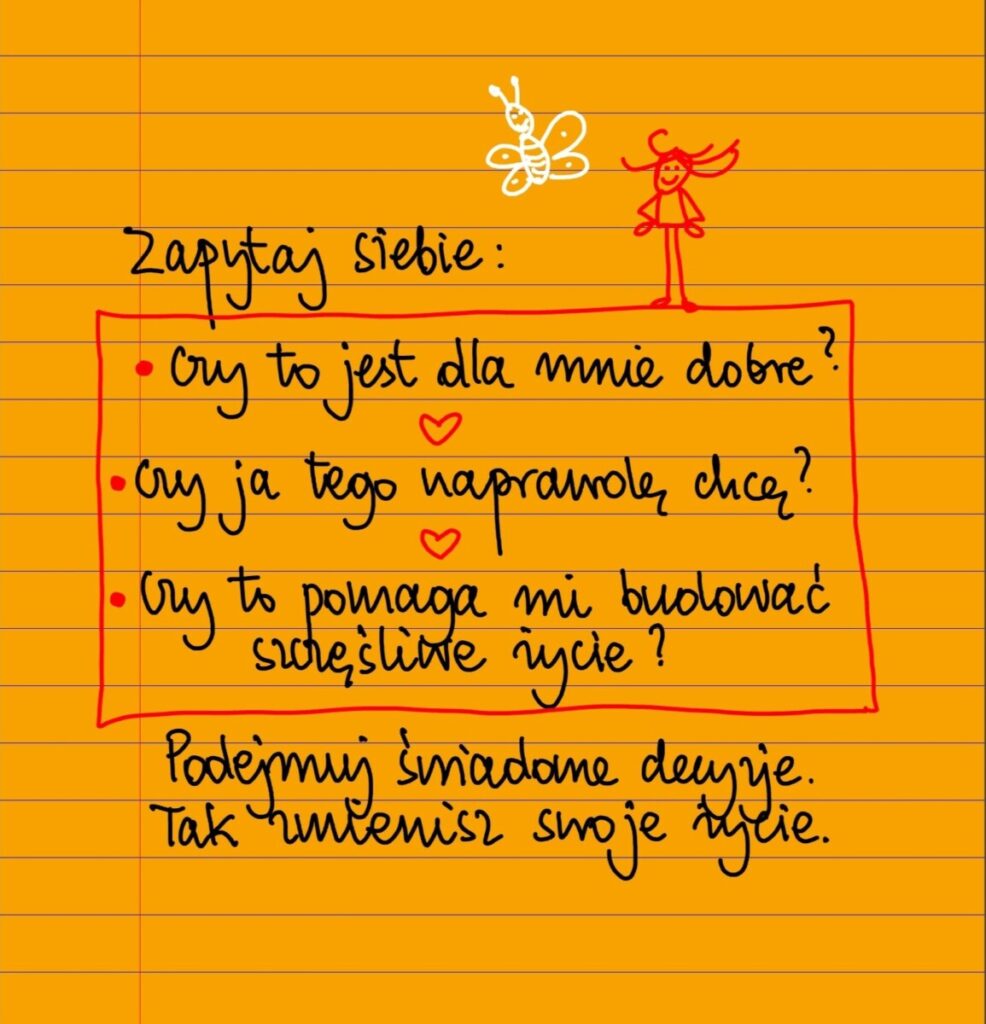 Zapytaj siebie:
• Czy to jest dla mnie dobre?
• Czy ja tego naprawdę chcę?
• Czy to pomaga mi budować
szczęśliwe życie?
Podejmuj świadome decyzje.
Tak zmienisz swoje życie.